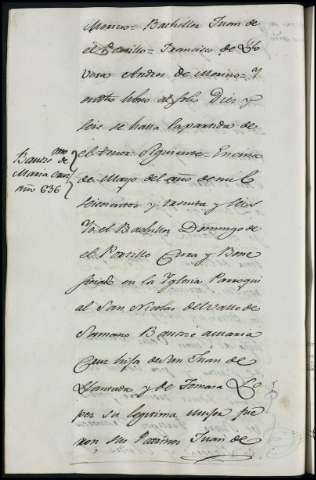 Moreno = Bachiller Juan de
el Portillo = Francisco de Lo
vera Andres de Merino = Y
en otro libro al folio Diez y
seis se halla la partida de
el tenor Siguiente = En cinco
de Mayo del año de mil
Seiscientos y treinta y seis
Yo el Bachiller Domingo de
el Portillo Cura y Bene
ficiado en la Iglesia Parroqui
al San Nicolas del Valle de
Samano Bautizé a Maria
Cruz hija de San Juan de
y de Tomasa
por su legitima muger fue
ron sus Padrinos Juan de
Bautizmo de
Maria Cruz
año 636